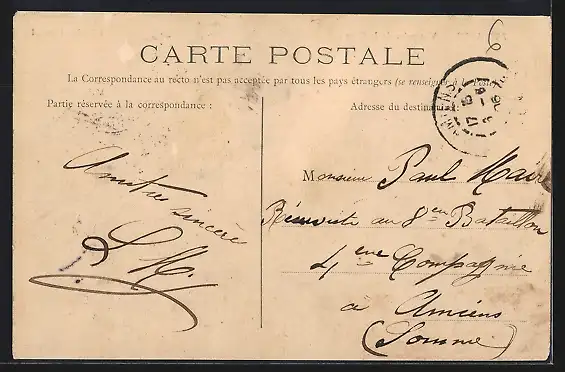 CARTE POSTALE
La Correspondance au recto n'est pas acceptée par tous les pays étrangers (se renseigner à la Poste)
Partie réservée à la correspondance :
Adresse du destinataire :
6
AMIENS
Amitiés sincère
Monsieur Paul
au 8en Bataillon
4 eme Compagnie
a Amiens
(Somme)